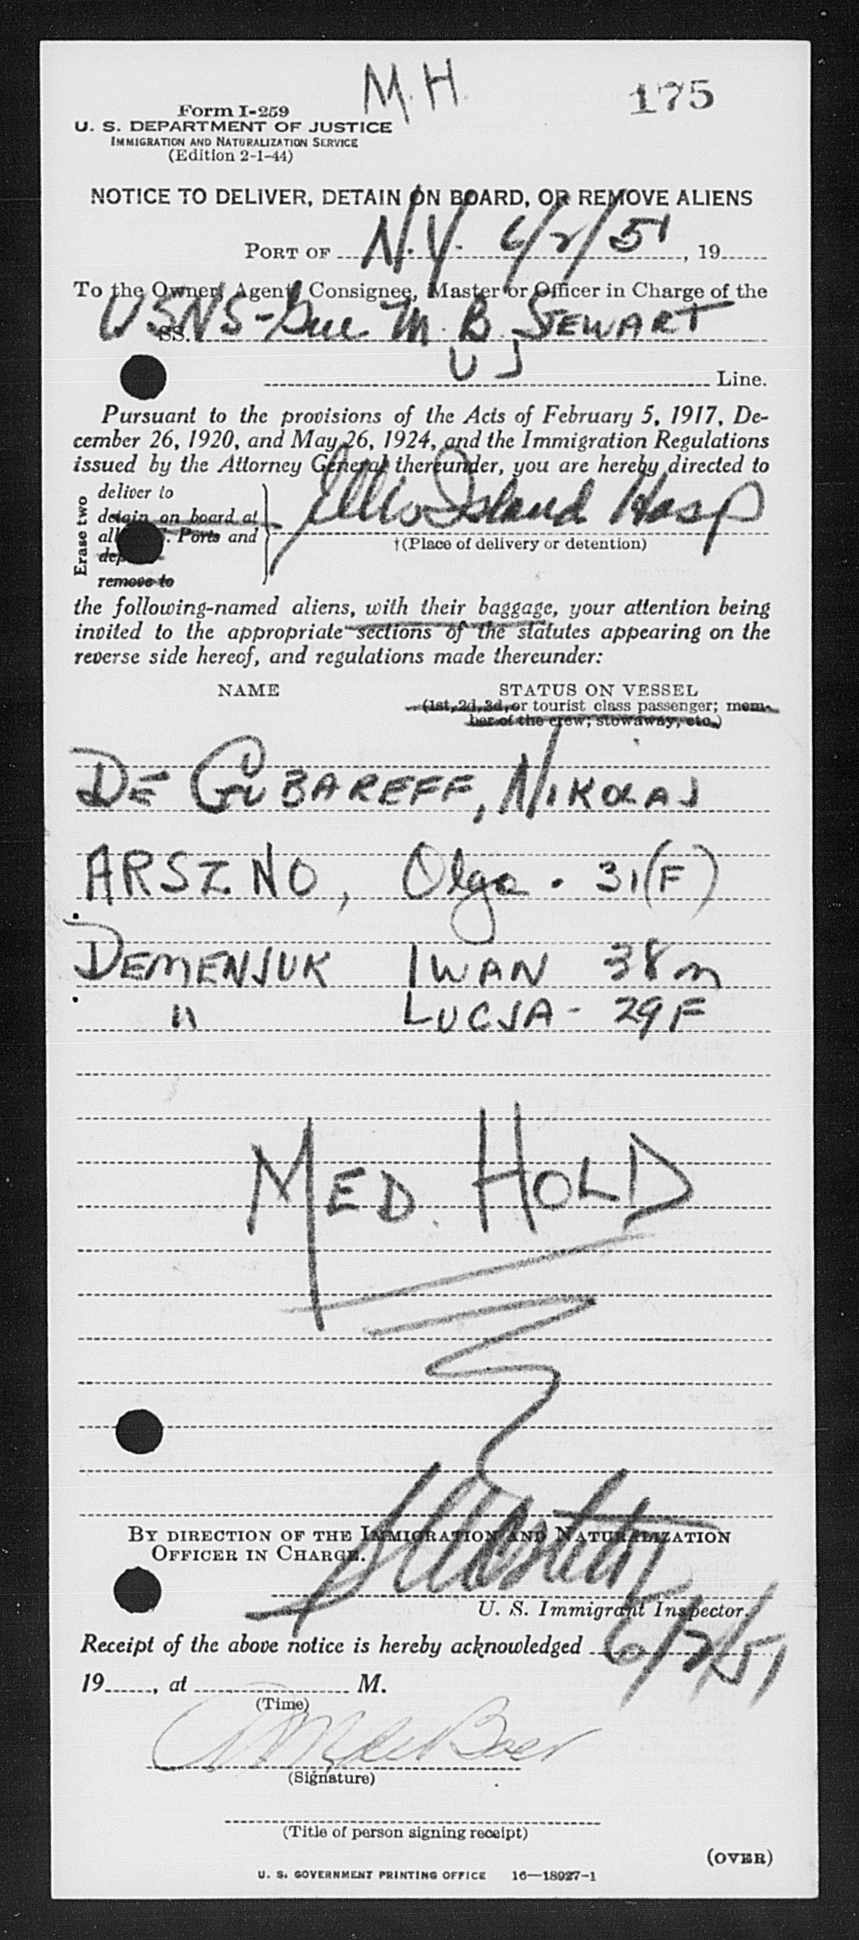 M.H.
175
Form I-259
U. S. DEPARTMENT OF JUSTICE
IMMIGRATION AND NATURALIZATION SERVICE
(Edition 2-1-44)
NOTICE TO DELIVER, DETAIN ON BOARD, OR REMOVE ALIENS
PORT OF N.Y. 6/2/51, 19
To the Owner, Agent, Consignee, Master or Officer in Charge of the
SS. USNS- M. B. STEWART
US
Line.
Pursuant to the provisions of the Acts of February 5, 1917, De-
cember 26, 1920, and May 26, 1924, and the Immigration Regulations
issued by the Attorney General thereunder, you are hereby directed to
Erase two
deliver to
detain on board at
all . Ports and
remove to
Ellis Island Hosp
†(Place of delivery or detention)
the following-named aliens, with their baggage, your attention being
invited to the appropriate sections of the statutes appearing on the
reverse side hereof, and regulations made thereunder:
NAME STATUS ON VESSEL
(1st, 2d, 3d, or tourist class passenger; mem-
ber of the crew; stowaway, etc.)
DE GUBAREFF, NIKOLAJ
ARSZNO, Olga - 31(F)
DEMENJUK IWAN 38 m
" LUCJA - 29 F
MED. HOLD
BY DIRECTION OF THE IMMIGRATION AND NATURALIZATION
OFFICER IN CHARGE.
U. S. Immigrant Inspector.
Receipt of the above notice is hereby acknowledged 6/2/51
19, at M.
(Time)
(Signature)
(Title of person signing receipt)
(OVER)
U. S. GOVERNMENT PRINTING OFFICE 16—18927-1